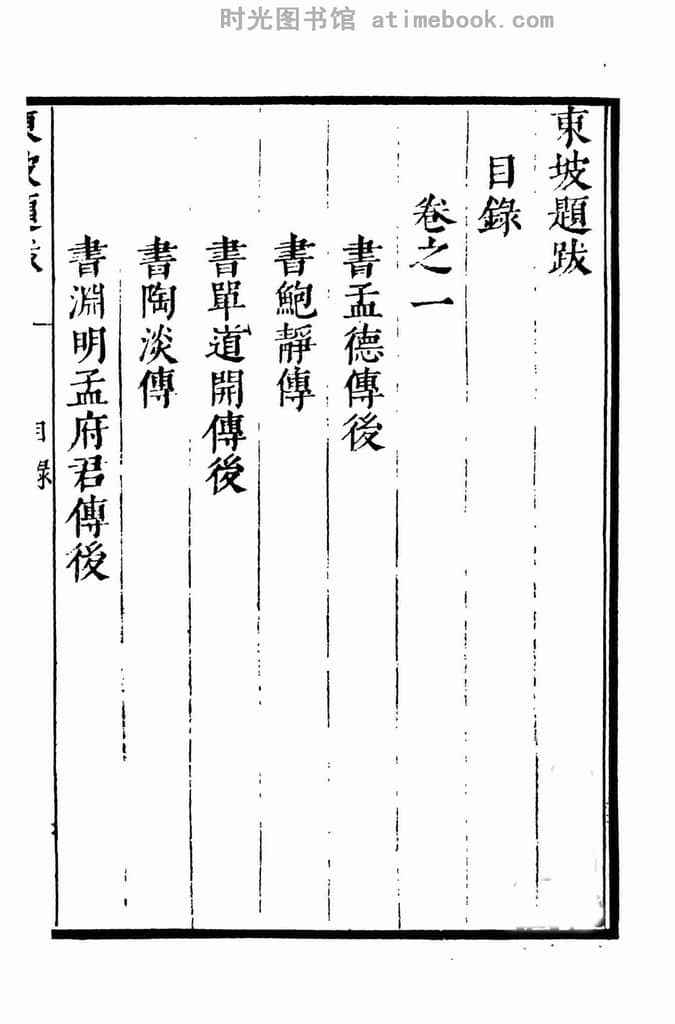 时光图书馆 atimebook.com
東坡題跋
目錄
卷之一
書孟德傳後
書鮑靜傳
書單道開傳後
書陶淡傳
書淵明孟府君傳後
東坡題跋 一 目錄